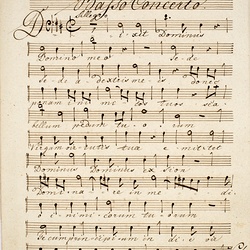 Basso Concerto
Allegro
Dixit Dominus
Domino meo Sede
Sede a dextris meis donec
ponam inimicos tuos sca
bellum pedum tuorum
Virgam virtutis tuae emittet
Dominus Dominus ex Sion
Dominare in medi
o inimicorum tuorum
Tecum principium in die